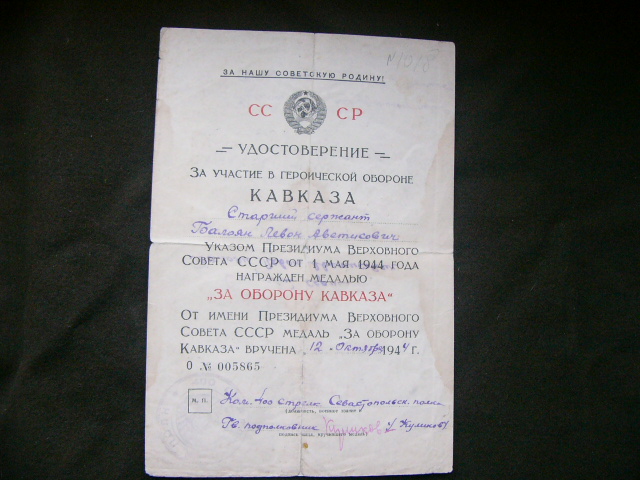 ЗА НАШУ СОВЕТСКУЮ РОДИНУ!
СС СР
УДОСТОВЕРЕНИЕ
ЗА УЧАСТИЕ В ГЕРОИЧЕСКОЙ ОБОРОНЕ
КАВКАЗА
Старший сержант
Балоян Левон Аветисович
УКАЗОМ ПРЕЗИДИУМА ВЕРХОВНОГО
СОВЕТА СССР ОТ 1 МАЯ 1944 ГОДА
НАГРАЖДЕН МЕДАЛЬЮ
„ЗА ОБОРОНУ КАВКАЗА“
ОТ ИМЕНИ ПРЕЗИДИУМА ВЕРХОВНОГО
СОВЕТА СССР МЕДАЛЬ „ЗА ОБОРОНУ
КАВКАЗА“ ВРУЧЕНА „12 Октября 1944 Г.
О № 005865
М. П.
Ком. 400 стрелк. Севастопольск. полка
Гв. подполковник Куликов